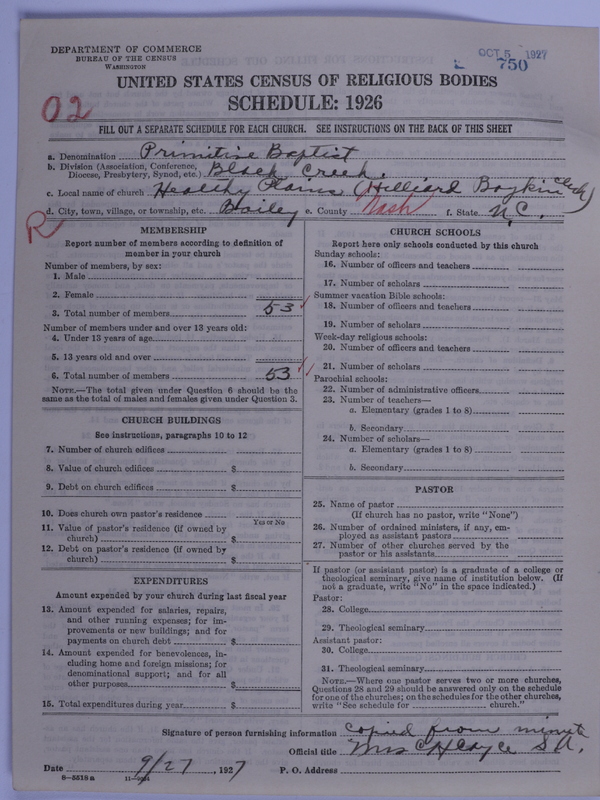 DEPARTMENT OF COMMERCE
BUREAU OF THE CENSUS
WASHINGTON
OCT 5 1927
750
UNITED STATES CENSUS OF RELIGIOUS BODIES
SCHEDULE: 1926
02
FILL OUT A SEPARATE SCHEDULE FOR EACH CHURCH. SEE INSTRUCTIONS ON THE BACK OF THIS SHEET
a. Denomination Primitive Baptist
b. Division (Association, Conference, Diocese, Presbytery, Synod, etc.) Black Creek.
c. Local name of church Healthy Plains (Hilliard Boykin Clerk)
d. City, town, village, or township, etc. Bailey e. County Nash f. State N.C.
R
MEMBERSHIP
Report number of members according to definition of
member in your church
Number of members, by sex:
1. Male
2. Female
3. Total number of members 53
Number of members under and over 13 years old:
4. Under 13 years of age
5. 13 years old and over
6. Total number of members 53
NOTE.—The total given under Question 6 should be the
same as the total of males and females given under Question 3.
CHURCH BUILDINGS
See instructions, paragraphs 10 to 12
7. Number of church edifices
8. Value of church edifices $
9. Debt on church edifices $
10. Does church own pastor's residence
Yes or No
11. Value of pastor's residence (if owned by
church) $
12. Debt on pastor's residence (if owned by
church) $
EXPENDITURES
Amount expended by your church during last fiscal year
13. Amount expended for salaries, repairs,
and other running expenses; for im-
provements or new buildings; and for
payments on church debt $
14. Amount expended for benevolences, in-
cluding home and foreign missions; for
denominational support; and for all
other purposes $
15. Total expenditures during year $
CHURCH SCHOOLS
Report here only schools conducted by this church
Sunday schools:
16. Number of officers and teachers
17. Number of scholars
Summer vacation Bible schools:
18. Number of officers and teachers
19. Number of scholars
Week-day religious schools:
20. Number of officers and teachers
21. Number of scholars
Parochial schools:
22. Number of administrative officers
23. Number of teachers—
a. Elementary (grades 1 to 8)
b. Secondary
24. Number of scholars—
a. Elementary (grades 1 to 8)
b. Secondary
PASTOR
25. Name of pastor
(If church has no pastor, write "None")
26. Number of ordained ministers, if any, em-
ployed as assistant pastors
27. Number of other churches served by the
pastor or his assistants
If pastor (or assistant pastor) is a graduate of a college or
theological seminary, give name of institution below. (If
not a graduate, write "No" in the space indicated.)
Pastor:
28. College
29. Theological seminary
Assistant pastor:
30. College
31. Theological seminary
NOTE.—Where one pastor serves two or more churches,
Questions 28 and 29 should be answered only on the schedule
for one of the churches; on the schedules for the other churches,
write "See schedule for church."
Signature of person furnishing information copied from minute
Official title Mrs S.A.
Date 9/27, 1927 P. O. Address
8-5518a